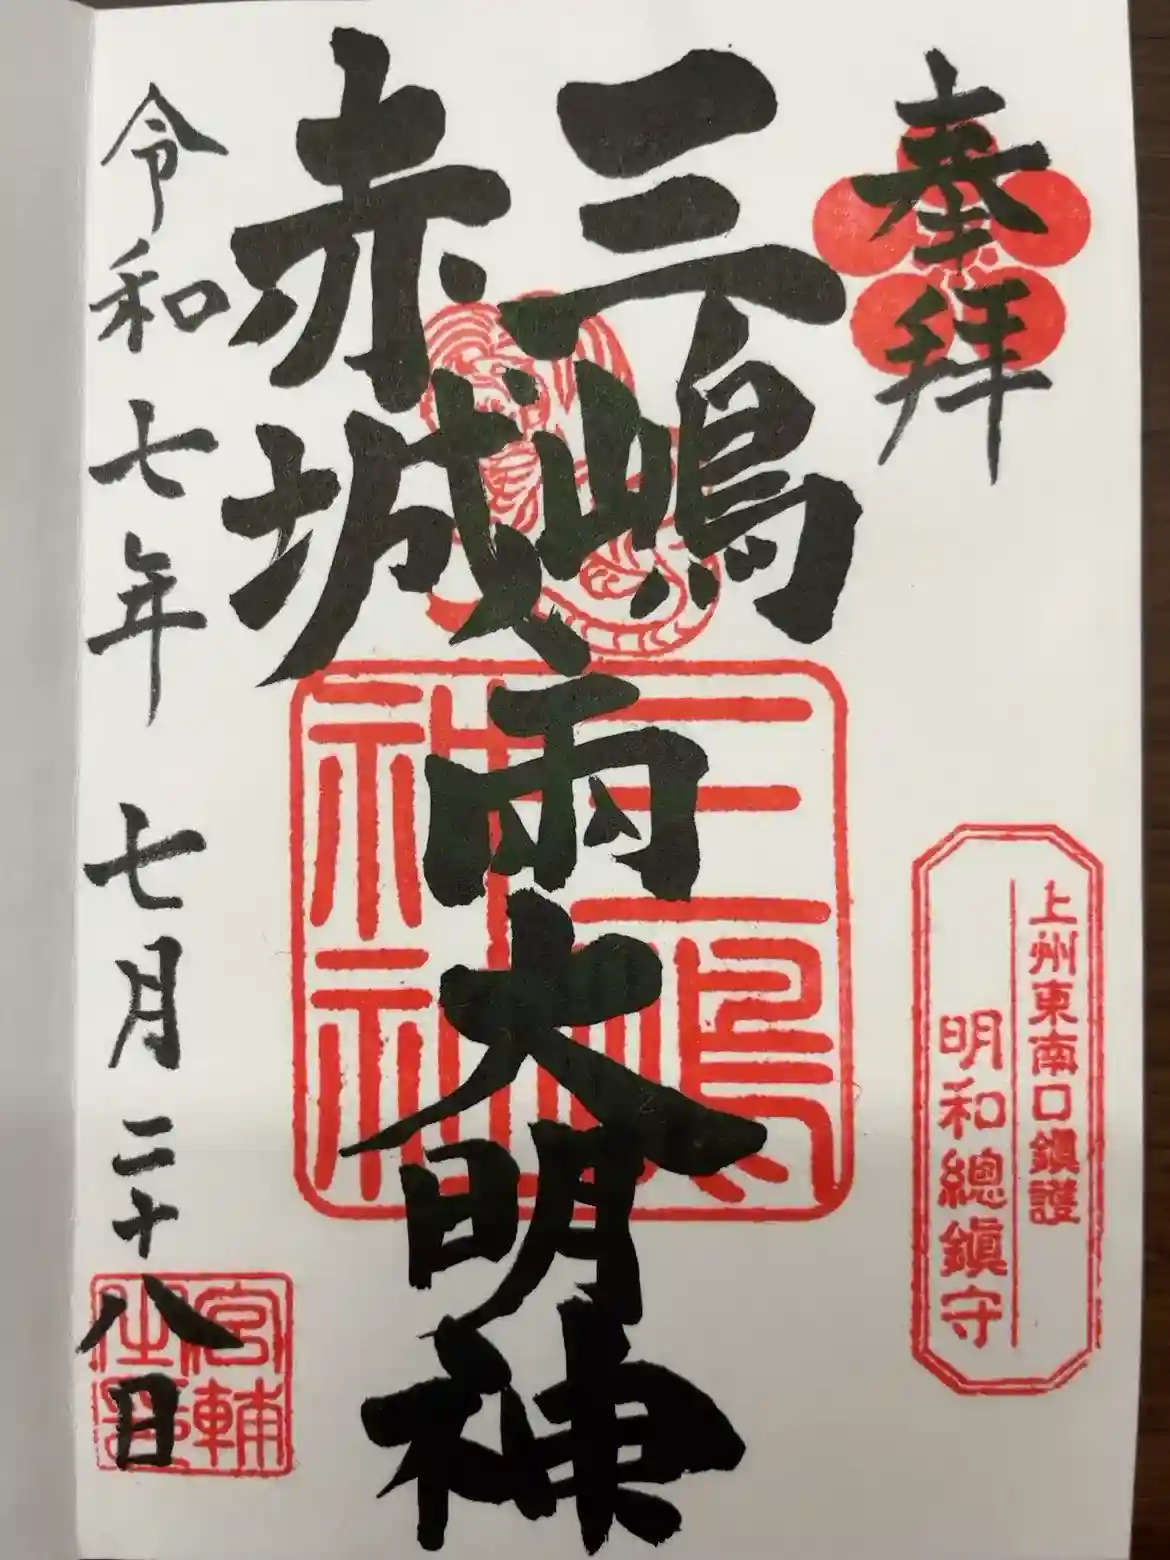 奉拝
上州東南口鎮護
明和總鎮守
三嶋
赤城
雨大明神
三嶋
神社
令和七年七月二十八日
宮輔